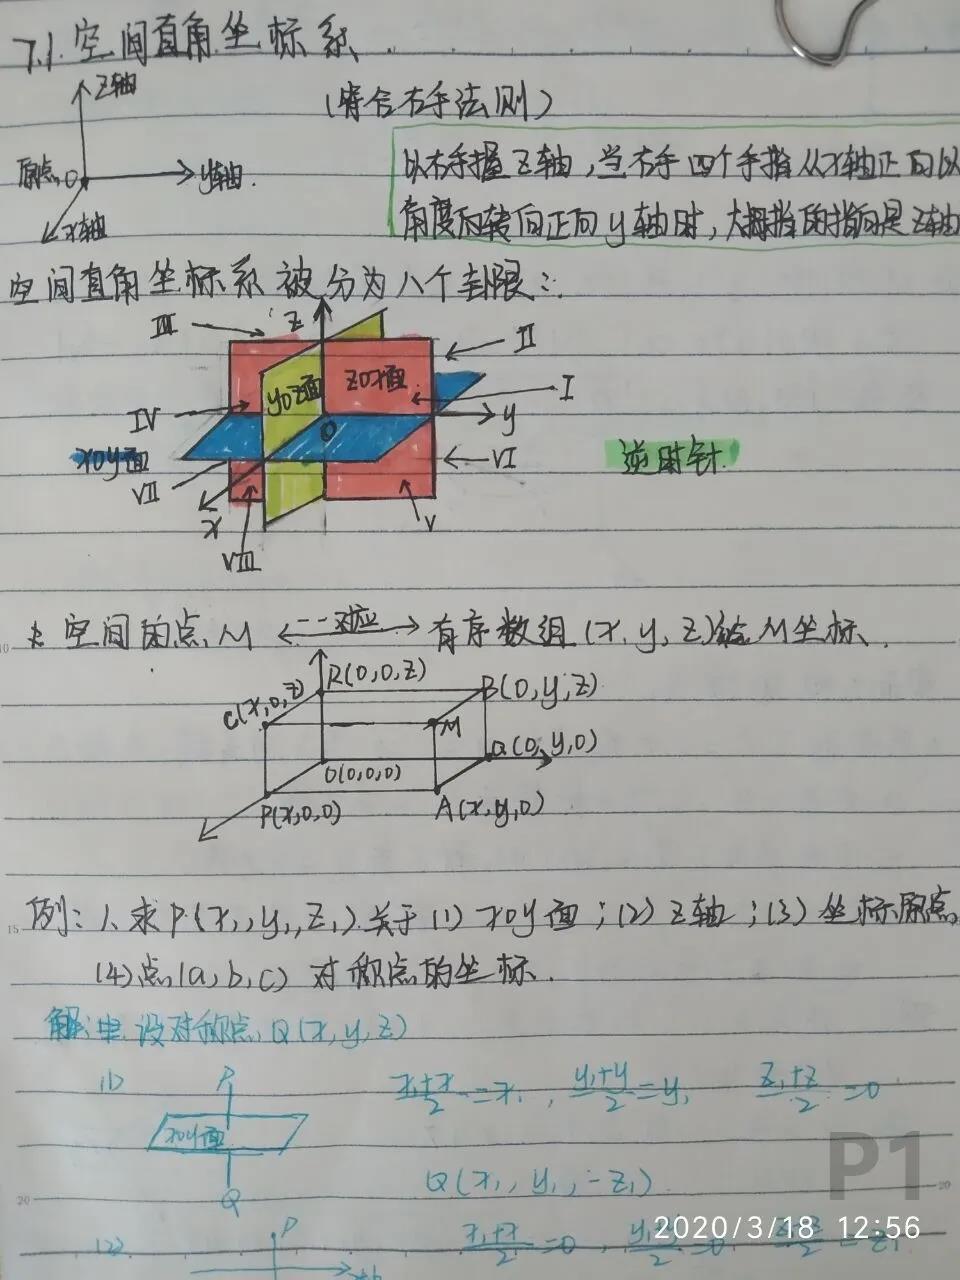 7.1. 空间直角坐标系
z轴
(符合右手法则)
原点 O
y轴
x轴
以右手握z轴,当右手四个手指从x轴正向以
角度的转向正向y轴时,大拇指的指向是z轴
空间直角坐标系被分为八个卦限:
III
z
II
yoz面
zox面
I
IV
O
y
xoy面
VI
逆时针
VII
x
V
VIII
空间的点M ←一一对应→ 有序数组(x,y,z)
M坐标.
R(0,0,z)
C(x,0,z)
B(0,y,z)
M
Q(0,y,0)
O(0,0,0)
P(x,0,0)
A(x,y,0)
例: 1.求P(x₁,y₁,z₁)关于(1) xoy面;(2) z轴;(3) 坐标原点
(4)点(a,b,c) 对称点的坐标.
解: 设对称点Q(x,y,z)
(1)
P
(x₁+x)/2=x₁, (y₁+y)/2=y₁ (z₁+z)/2=0
xoy面
Q
Q(x₁,y₁,-z₁)
P1
2020/3/18 12:56
(2)
P
(x₁+x)/2=0